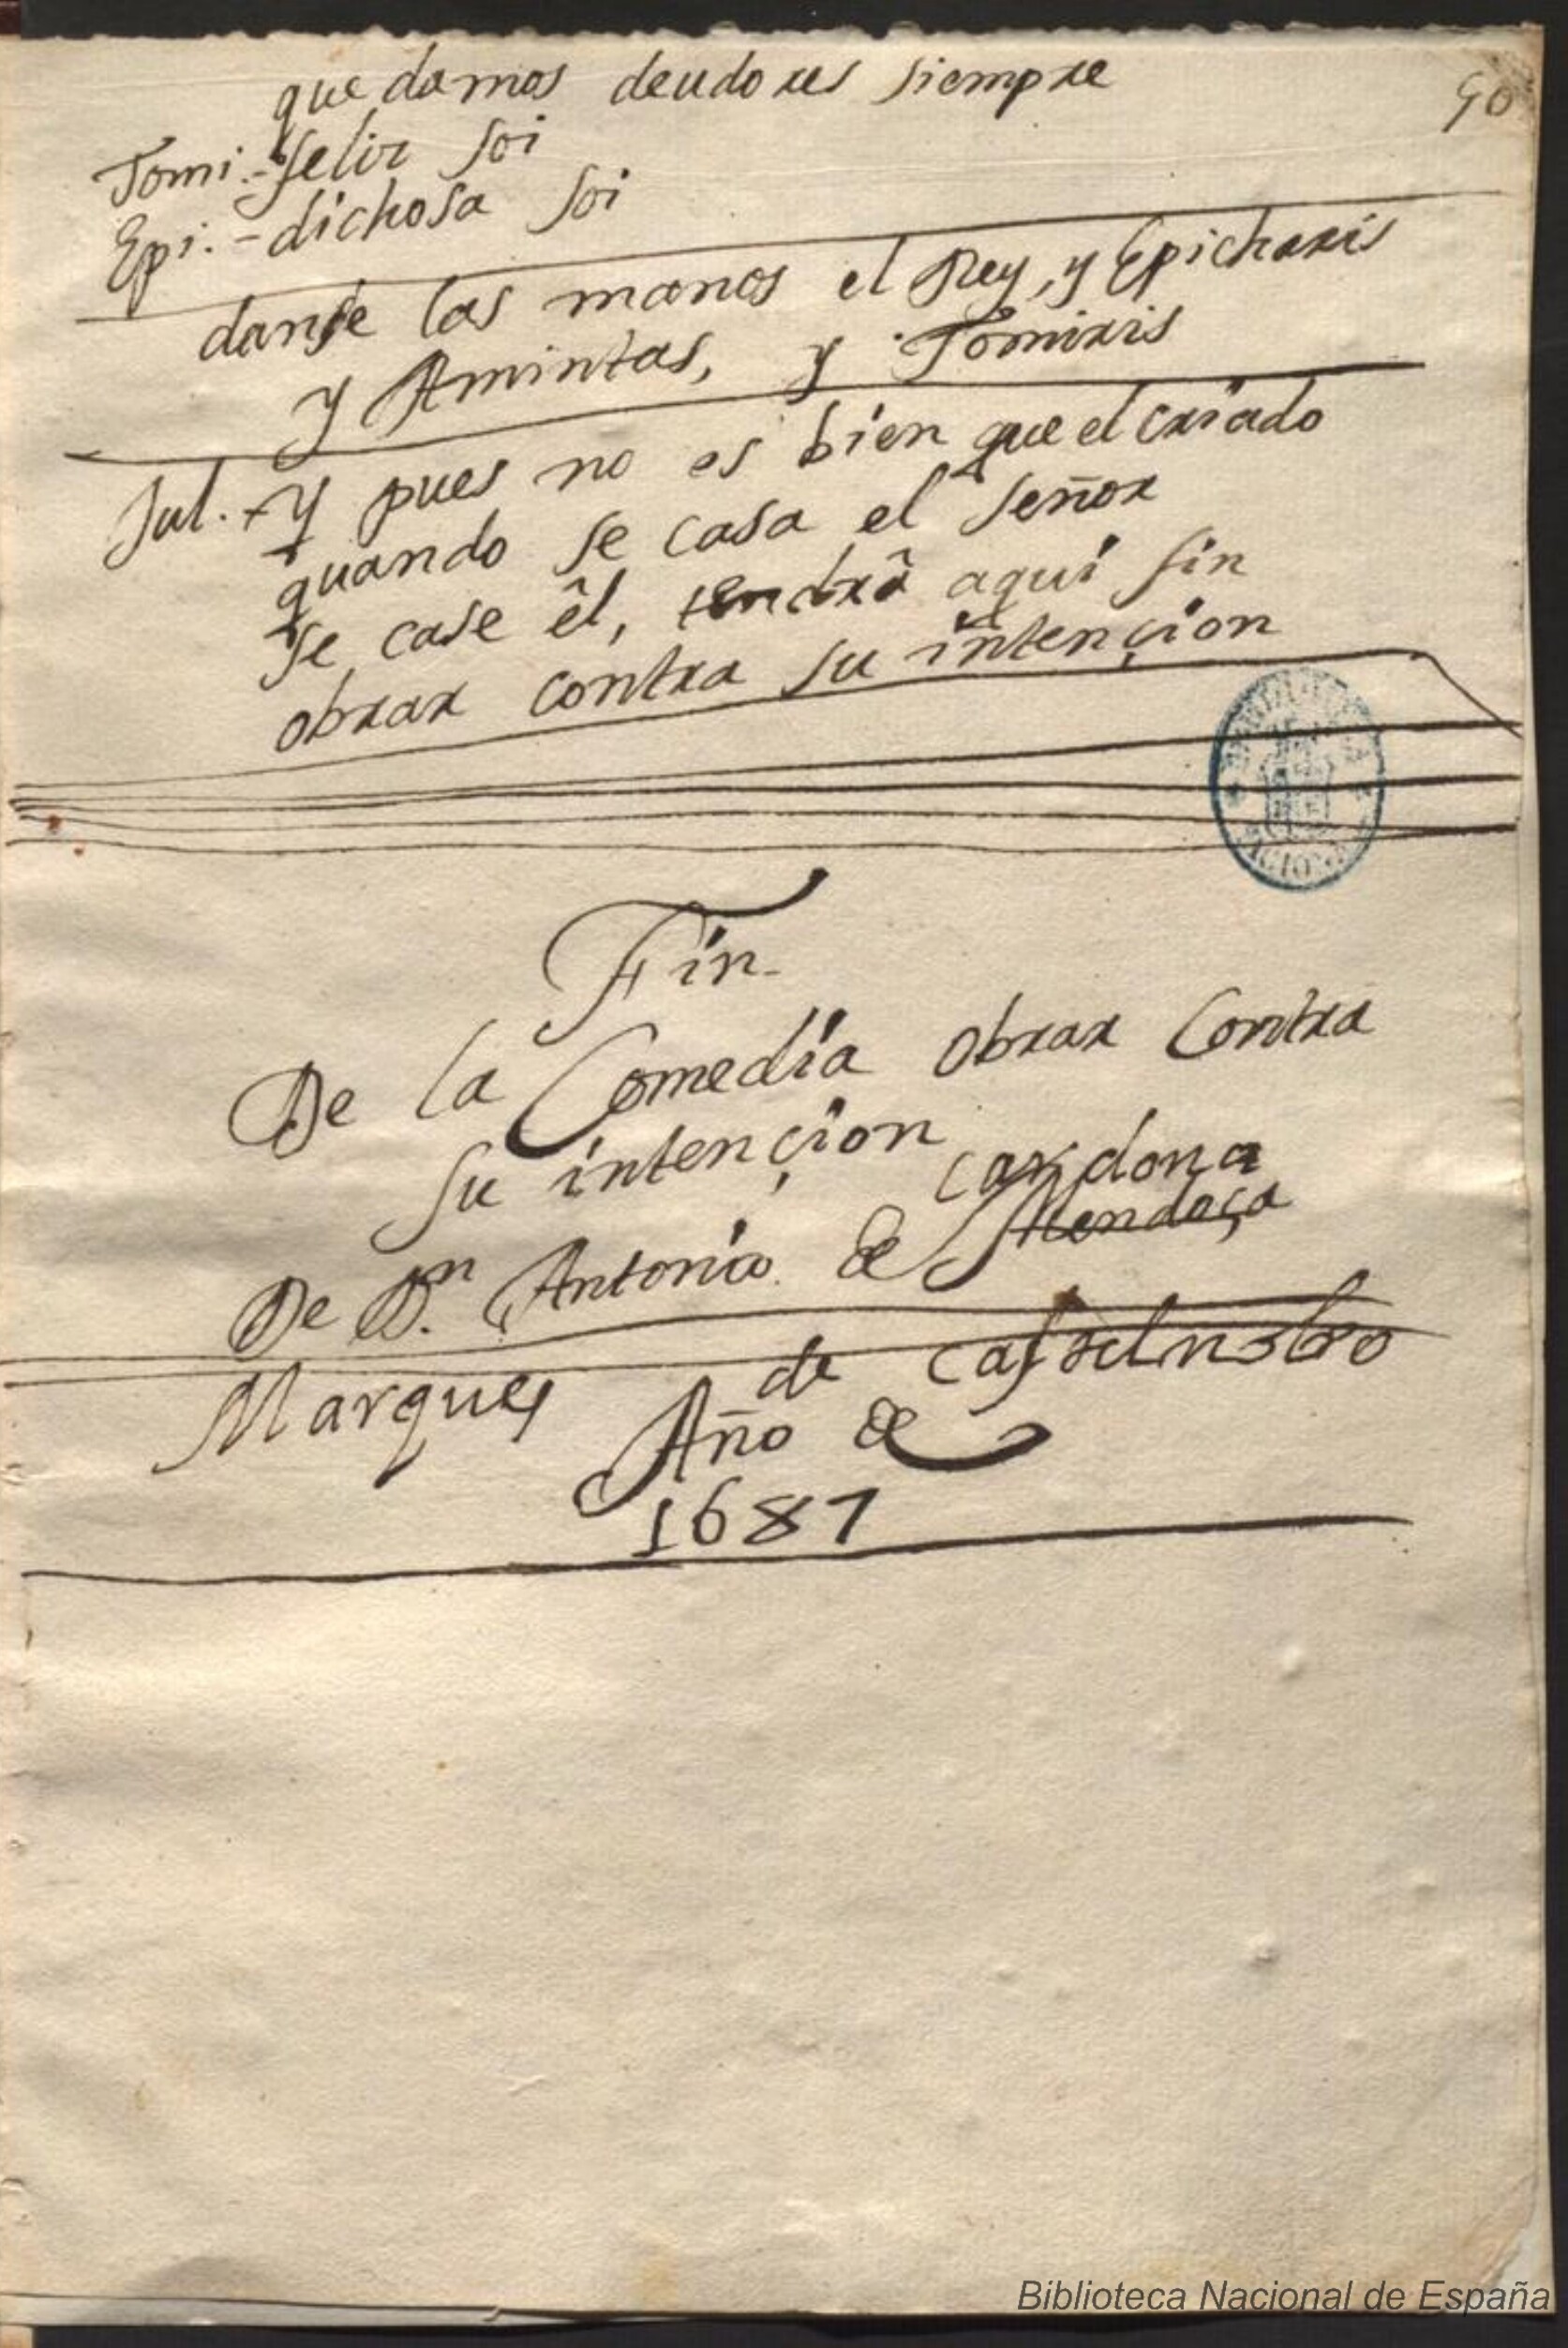 50
quedamos deudores siempre
Tomi.- felix soi
Epi.- dichosa soi
danse las manos el Rey, y Epicharis
y Amintas, y Tomiris
Jul.- Y pues no es bien que el criado
quando se casa el señor
se case êl, tendrâ aqui fin
obrar contra su intençion
Fin-
De la Comedia obrar Contra
su intençion
cardona
De D.n Antonio de Mendoça
Marques de Castelnobo
Año de
1687
Biblioteca Nacional de España